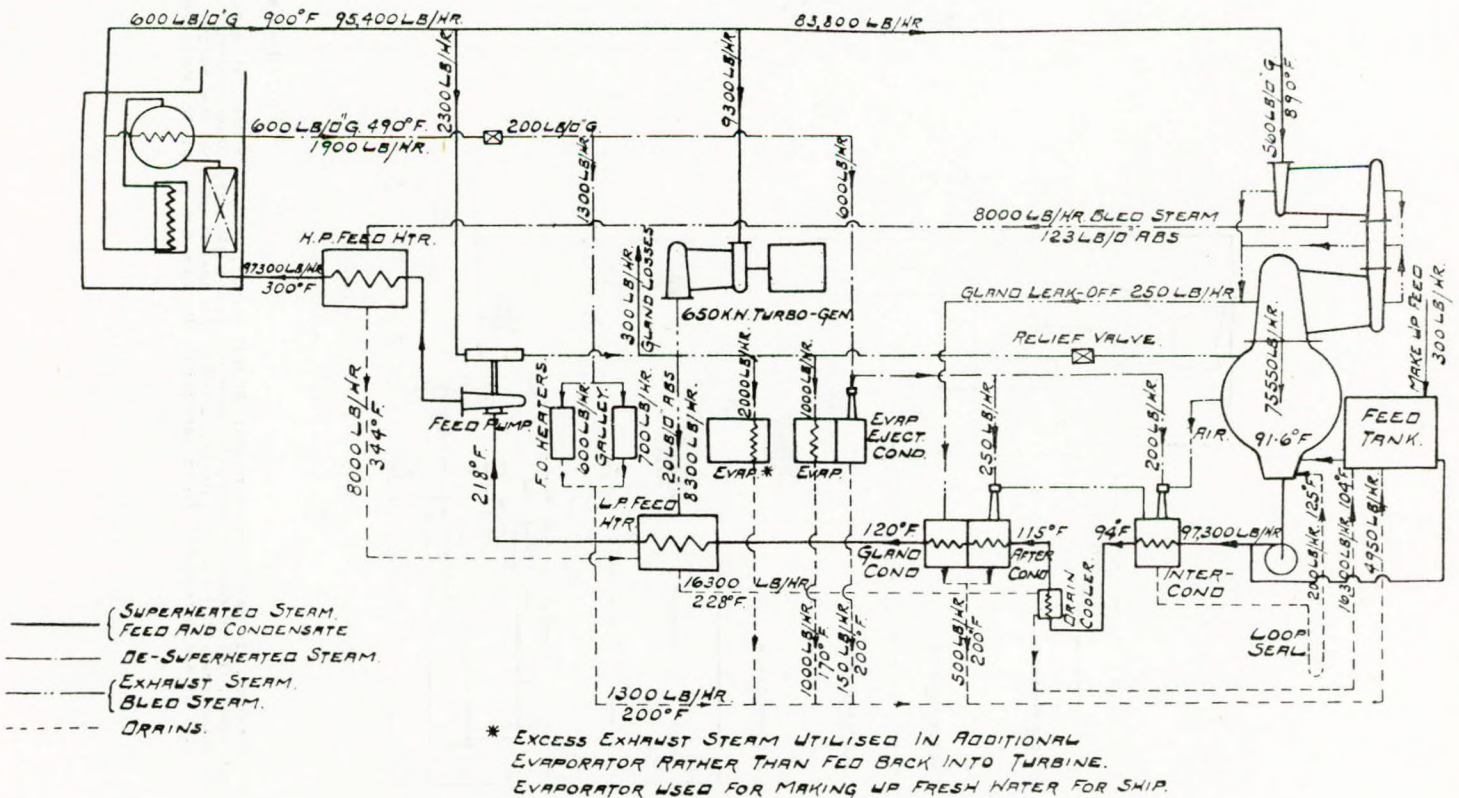 600 LB/□"G 900°F 95,400 LB/HR.
83,800 LB/HR
2300 LB/HR
9300 LB/HR
560 LB/□"G
890°F.
600 LB/□"G. 490°F.
1900 LB/HR.
200 LB/□"G.
1300 LB/HR
600 LB/HR
8000 LB/HR. BLED STEAM
123 LB/□" ABS
H.P. FEED HTR.
97300 LB/HR
300°F
300 LB/HR
GLAND LOSSES
650 K.W. TURBO-GEN.
GLAND LEAK-OFF 250 LB/HR
RELIEF VALVE
MAKE UP FEED
300 LB/HR.
75550 LB/HR.
91.6°F
FEED
TANK.
AIR.
8000 LB/HR
344°F.
FEED PUMP.
218°F
F.O HEATERS
600 LB/HR
GALLEY.
700 LB/HR
20 LB/□" ABS
8300 LB/HR.
2000 LB/HR
1000 LB/HR.
EVAP. *
EVAP.
EVAP
EJECT.
COND.
250 LB/HR.
200 LB/HR
L.P. FEED
HTR.
120°F
GLAND
COND
115°F
AFTER
COND
94°F
97,300 LB/HR
INTER-
COND
DRAIN
COOLER.
16300 LB/HR
228°F.
200 LB/HR. 125°F.
16300 LB/HR. 104°F.
4950 LB/HR.
LOOP
SEAL
1000 LB/HR.
170°F.
150 LB/HR.
200°F.
500 LB/HR
200°F.
1300 LB/HR.
200°F
SUPERHEATED STEAM.
FEED AND CONDENSATE
DE-SUPERHEATED STEAM.
EXHAUST STEAM.
BLED STEAM.
DRAINS.
* EXCESS EXHAUST STEAM UTILISED IN ADDITIONAL
EVAPORATOR RATHER THAN FED BACK INTO TURBINE.
EVAPORATOR USED FOR MAKING UP FRESH WATER FOR SHIP.